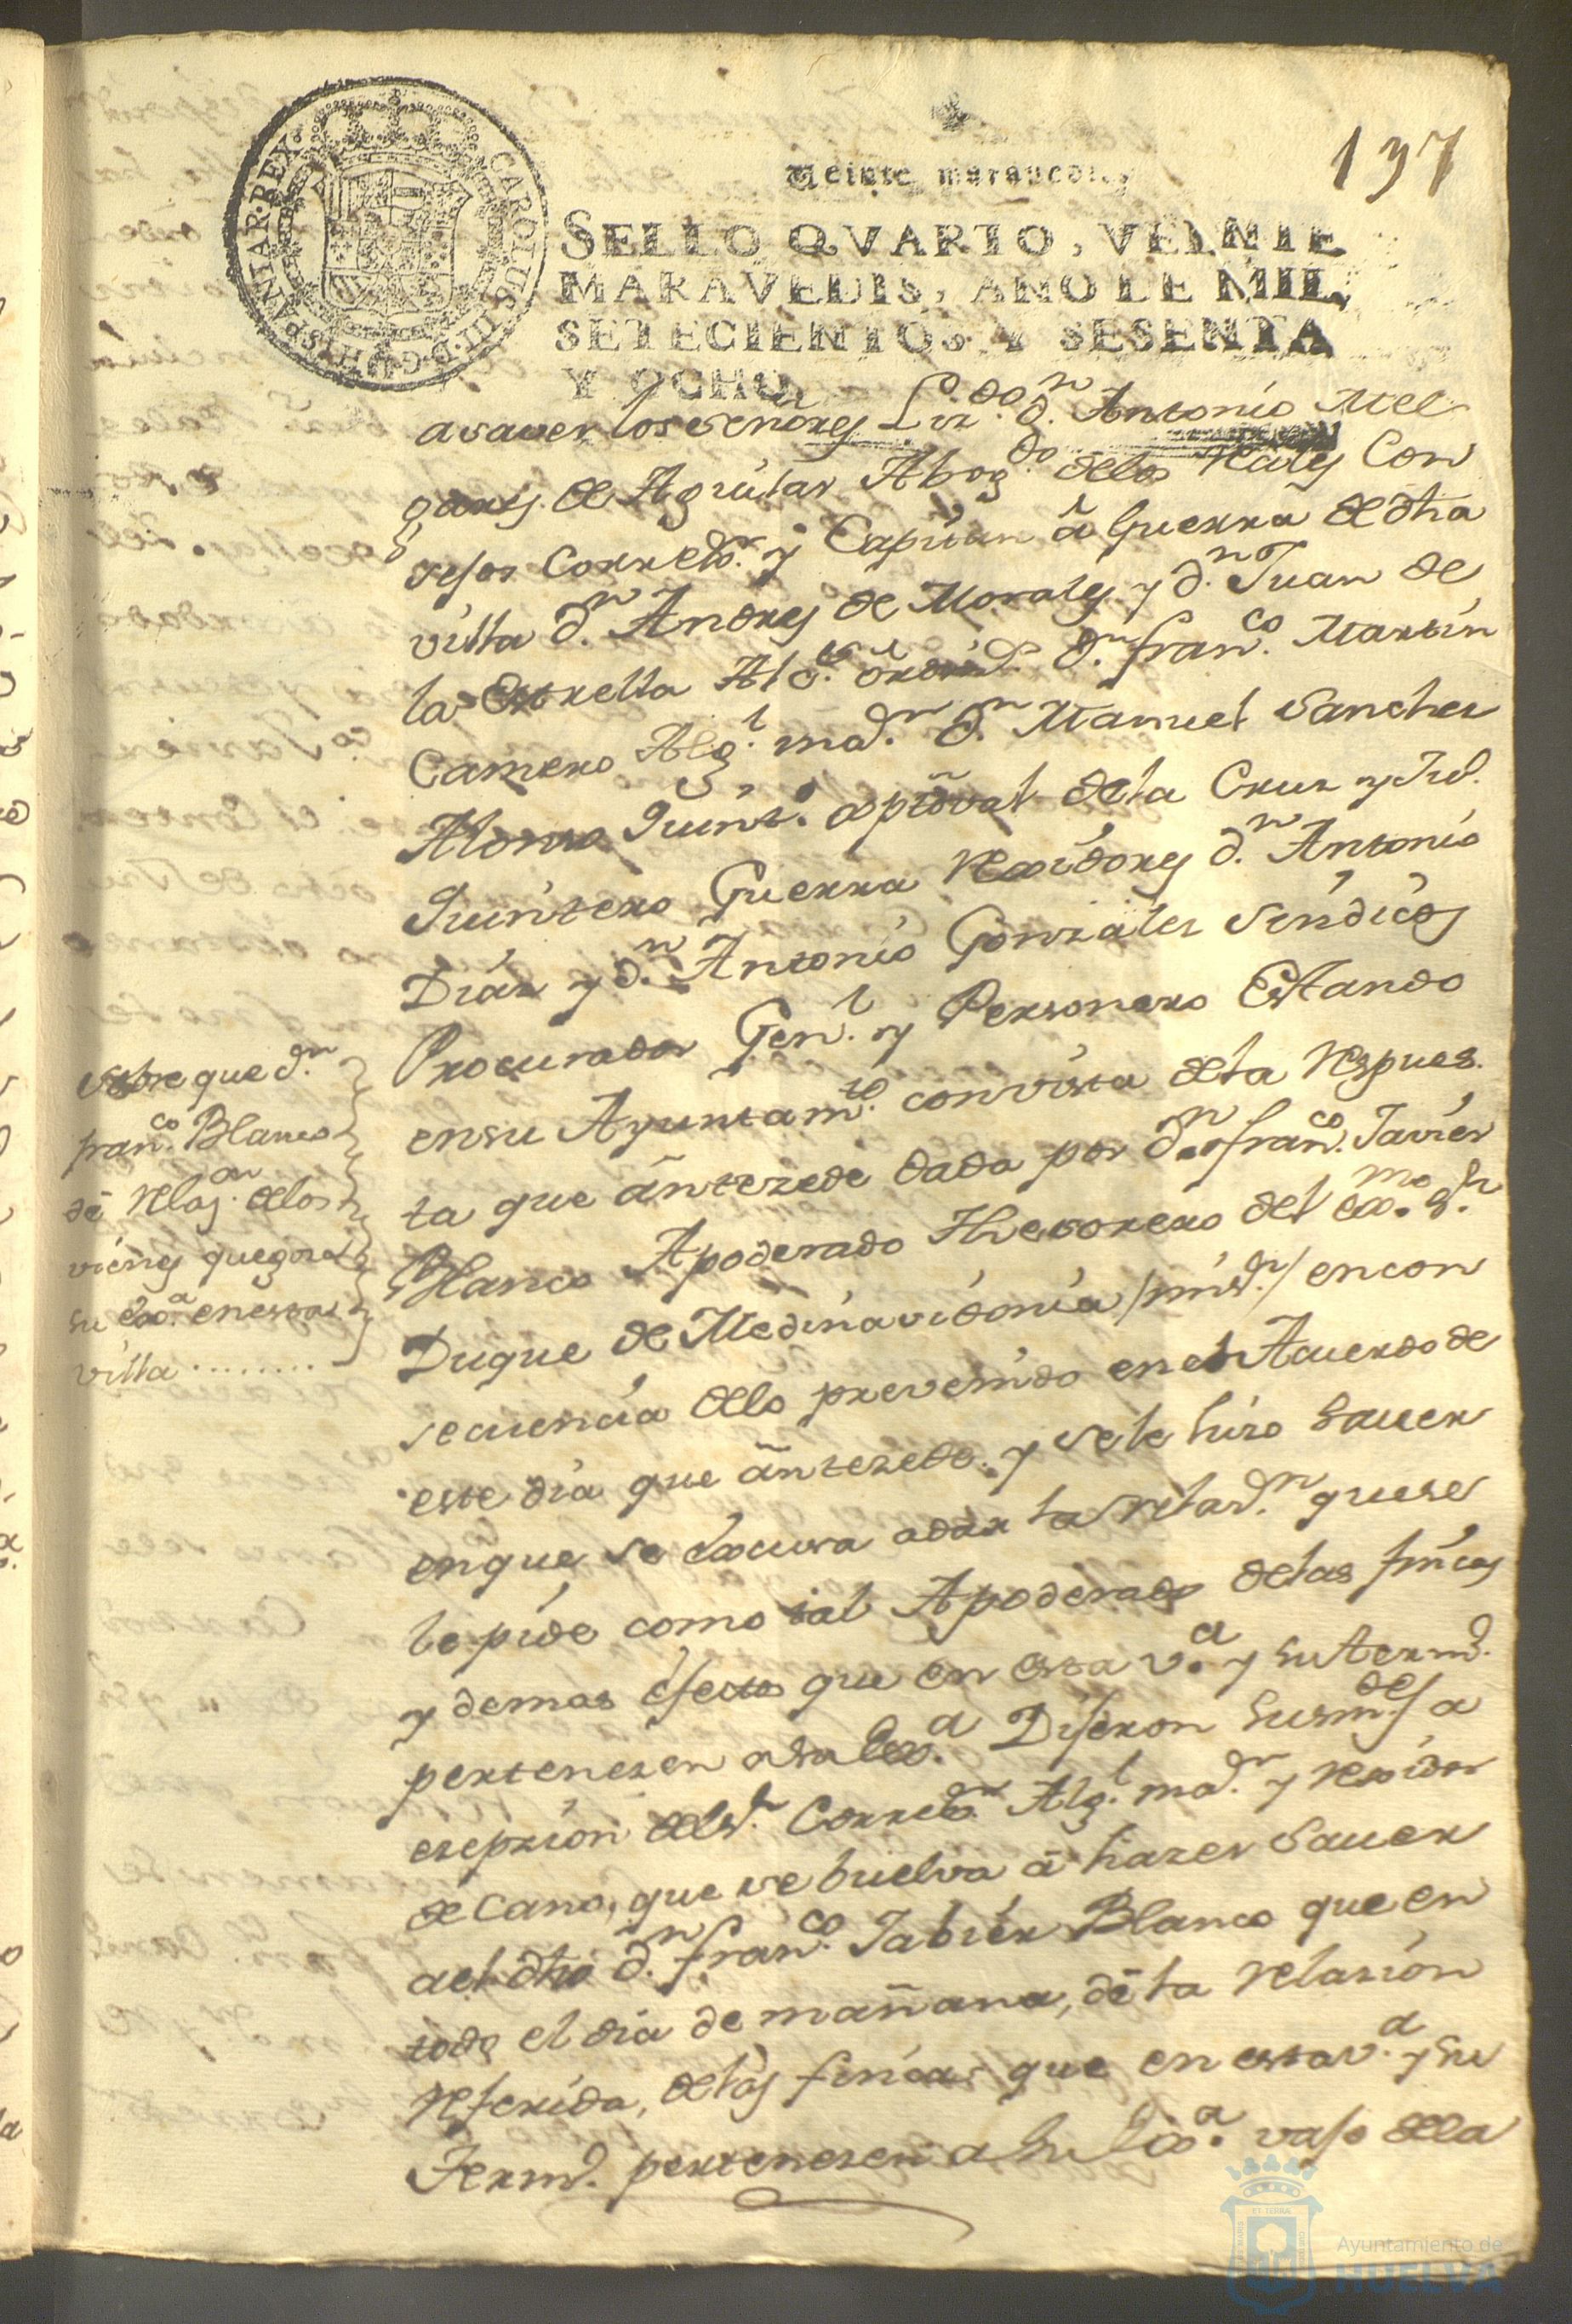 137
CAROLUS III D G HISPANIAR REX
Veinte maravedis
SELLO QVARTO, VEINTE
MARAVEDIS, AÑO DE MIL
SETECIENTOS Y SESENTA
Y OCHO.
asaver los señores Liz.do d.n Antonio Mel
garejo de Aguilar Abog.do delos Reales Con
sejos Correxr. y Capitan â Guerra de dha
villa d.n Andres de Morales y d.n Juan de
la Estrella Alc.s ôrdin.s d.n fran.co Martin
Camero Alg.l ma.r d.n Manuel Sanches
Alonso Quint.o Cruz y Jph.
Quintero Guerra Rexidores d.n Antonio
Diáz y d.n Antonio Gonzales Sindicos
Procurador Gen.l y Personero Estando
ensu Ayuntam.to convista dela Respues.
ta que ântezede dada por d.n fran.co Javiér
Blanco Apoderado Thesorero del exx.mo S.r
Duque de Medinasidonia /mi s.r/ encon
secuencia delo prevenido en el Acuerdo de
este dia que ântezede y sele hizo saver
enque se êxcusa adar la relas.n quese
le pide como tal Apoderado delas fincas
y demas êfectos que en esta v.a y su term.o
pertenesen a su Exx.a Dijeron susm.des a
esepzion dels.r Correxr. Alg.l ma.r y Rexidor
decano, que se buelva â hazer saver
ael dho d.n fran.co Jabiér Blanco que en
todo el dia de mañana, dé la Relazion
referida, delas fincas que en esta v.a y su
Term.o pertenesen a su Exx.a vajo dela
Sobre que d.n
fran.co Blanco
dé Relaz.on delos
viénes que goza
su Exx.a en esta
villa ........
Ayuntamiento de
HUELVA